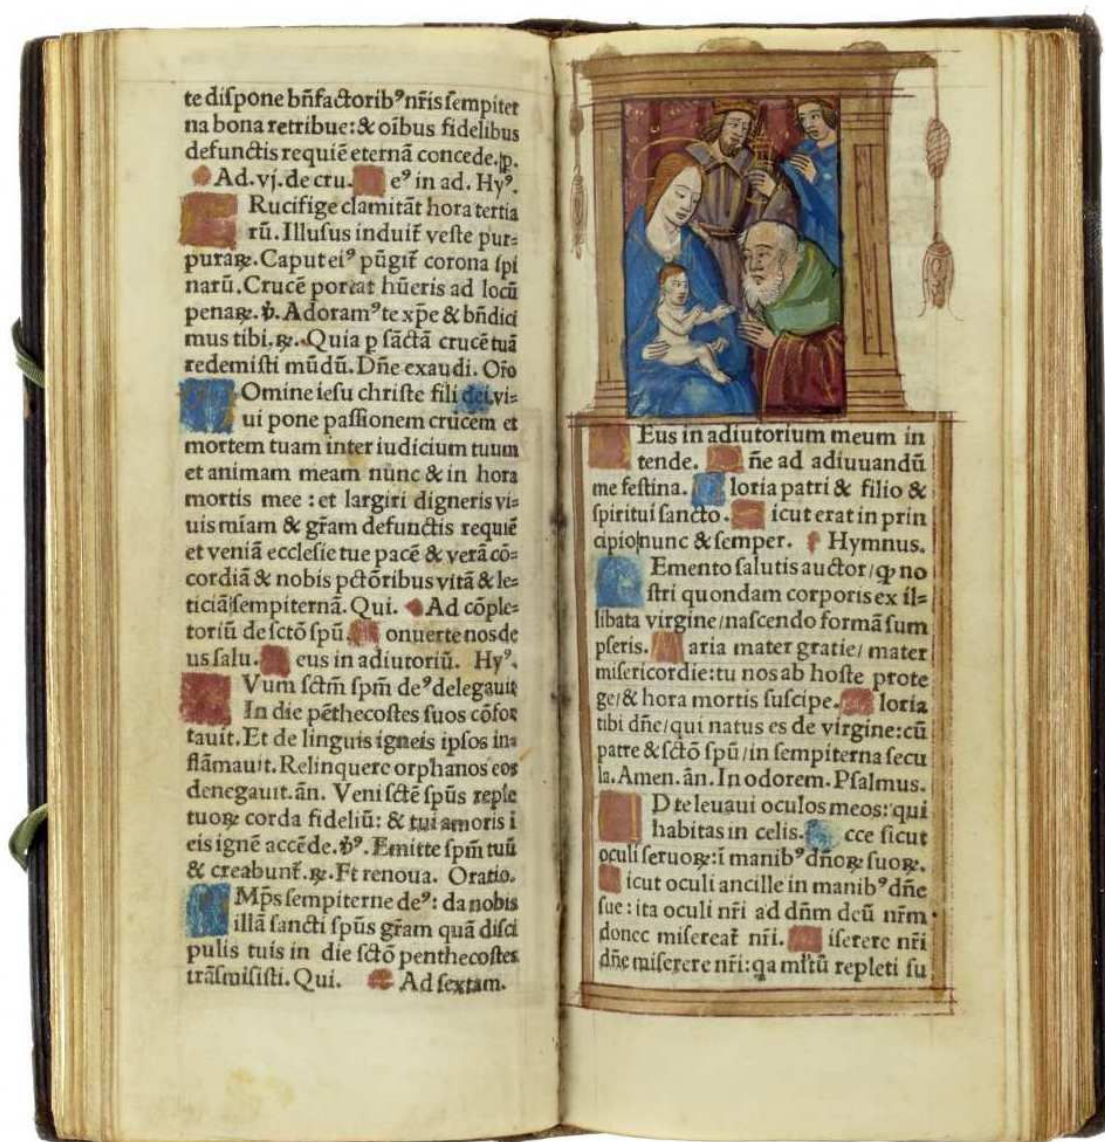 te dispone bn̄factorib⁹ nr̄is sempiter
na bona retribue: & oībus fidelibus
defunctis requiē eternā concede. p.
Ad. vj. de cru. e⁹ in ad. Hy⁹.
Rucifige clamitāt hora tertia
rū. Illusus induit̄ veste pur=
puraꝝ. Caput ei⁹ pūgit̄ corona spi
narū. Crucē portat hūeris ad locū
penaꝝ. ℣. Adoram⁹ te xp̄e & bn̄dici
mus tibi. ꝶ. Quia p sāctā crucē tuā
redemisti mūdū. Dn̄e exaudi. Oro
Omine iesu christe fili dei vi=
ui pone passionem crucem et
mortem tuam inter iudicium tuum
et animam meam nunc & in hora
mortis mee : et largiri digneris vi=
uis miam & gr̄am defunctis requiē
et veniā ecclesie tue pacē & verā cō=
cordiā & nobis pctōribus vitā & le=
ticiā sempiternā. Qui. Ad cōple=
toriū de sctō spū. onuerte nos de
us salu. eus in adiutoriū. Hy⁹.
Vum sctm̄ spm̄ de⁹ delegauit
In die pēthecostes suos cōfor
tauit. Et de linguis igneis ipsos in=
flāmauit. Relinquere orphanos eos
denegauit. ān. Veni sctē spūs reple
tuoꝝ corda fideliū: & tui amoris i
eis ignē accēde. ℣⁹. Emitte spm̄ tuū
& creabunt̄. ꝶ. Et renoua. Oratio.
Mp̄s sempiterne de⁹: da nobis
illā sancti spūs gr̄am quā disci
pulis tuis in die sctō penthecostes
trāsmisisti. Qui. Ad sextam.
Eus in adiutorium meum in
tende. n̄e ad adiuuandū
me festina. loria patri & filio &
spiritui sancto. icut erat in prin
cipio nunc & semper. Hymnus.
Emento salutis auctor/ ꝙ no
stri quondam corporis ex il=
libata virgine/ nascendo formā sum
pseris. aria mater gratie/ mater
misericordie: tu nos ab hoste prote
ge/ & hora mortis suscipe. loria
tibi dn̄e/ qui natus es de virgine: cū
patre & sctō spū/ in sempiterna secu
la. Amen. ān. In odorem. Psalmus.
D te leuaui oculos meos: qui
habitas in celis. cce sicut
oculi seruoꝝ: ī manib⁹ dn̄oꝝ suoꝝ.
icut oculi ancille in manib⁹ dn̄e
sue : ita oculi nr̄i ad dn̄m deū nr̄m
donec misereat̄ nr̄i. iserere nr̄i
dn̄e miserere nr̄i: qa ml̄tū repleti su